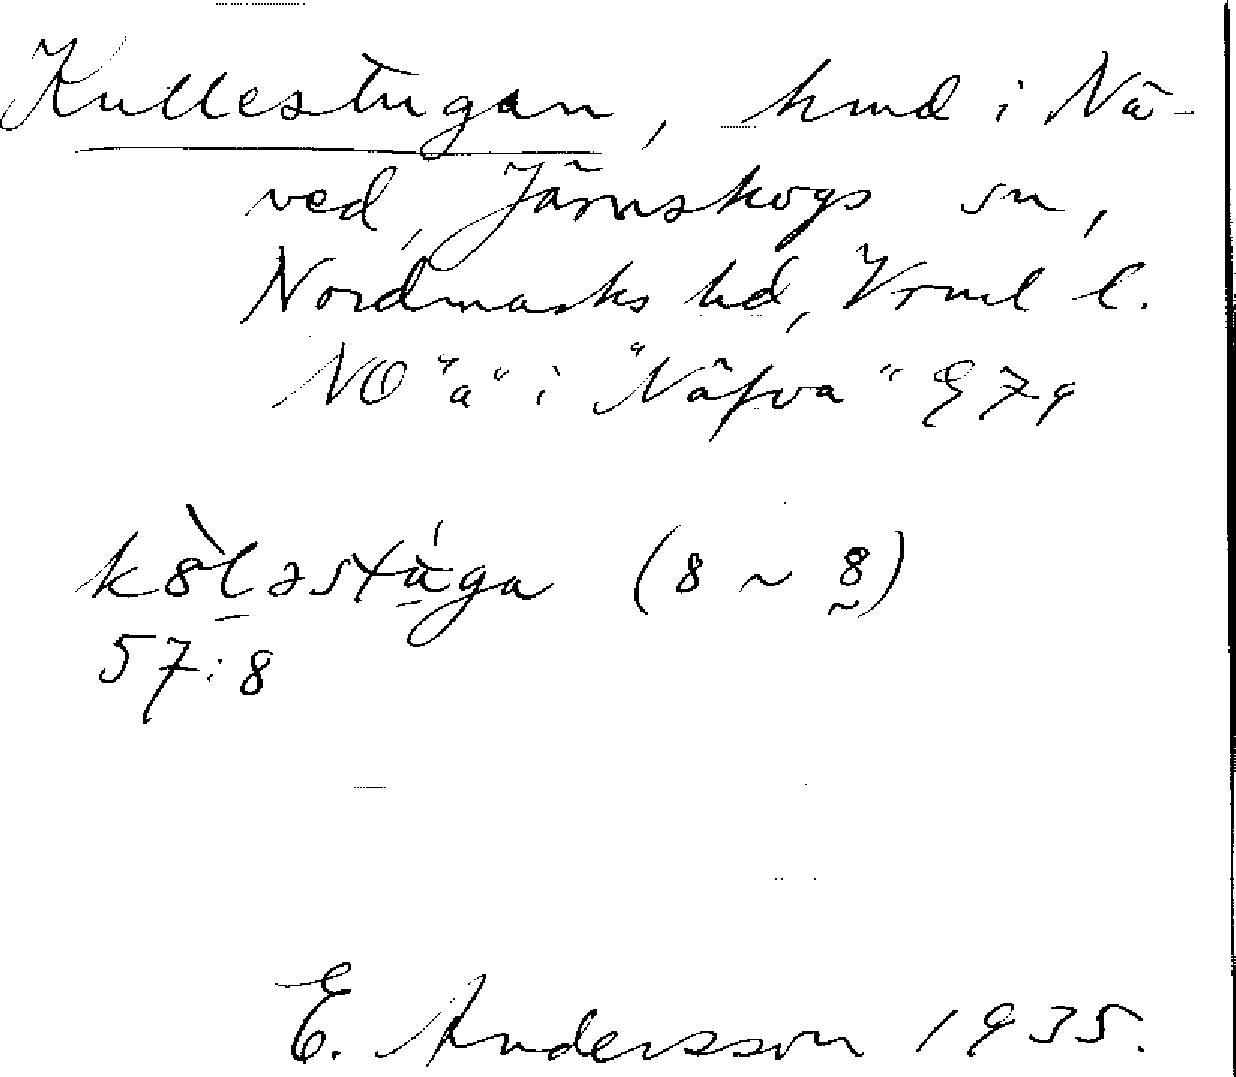 Kullestugan, hmd i Nä-
ved, Järnskogs sn,
Nordmarks hd, Vrml l.
NO "a" i "Näfva" E 79
k8̀l̠əstàga (8 ~ 8̰)
57:8
E. Andersson 1935.